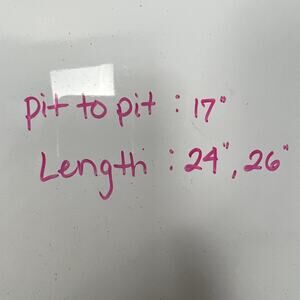 pit to pit : 17"
Length : 24", 26"